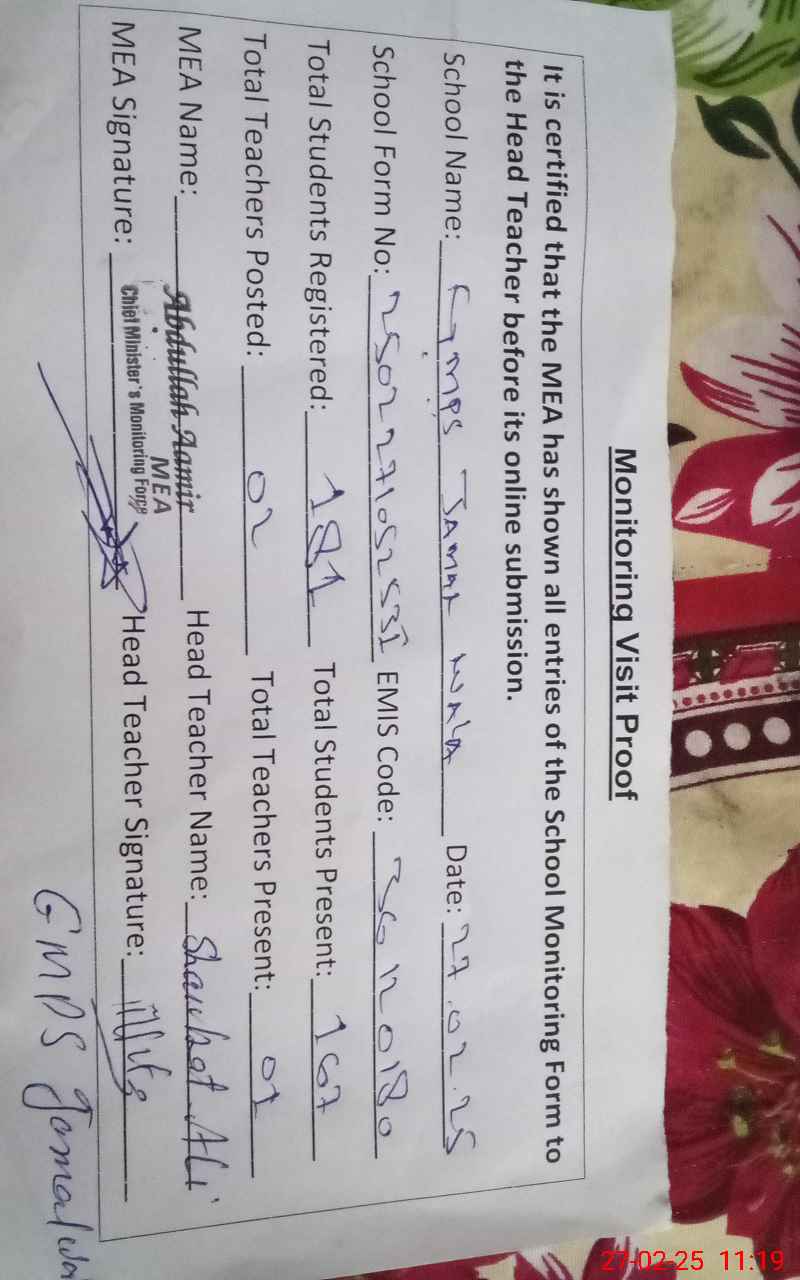 Monitoring Visit Proof
It is certified that the MEA has shown all entries of the School Monitoring Form to
the Head Teacher before its online submission.
School Name: GMPS Jamal wala Date: 27.02.25
School Form No: EMIS Code: 36120180
Total Students Registered: 181 Total Students Present: 167
Total Teachers Posted: 02 Total Teachers Present: 01
MEA Name: Abdullah Aamir Head Teacher Name: Shaukat Ali
MEA
Chief Minister's Monitoring Force
MEA Signature: Head Teacher Signature:
GMPS Jamal wa
27-02-25 11:19